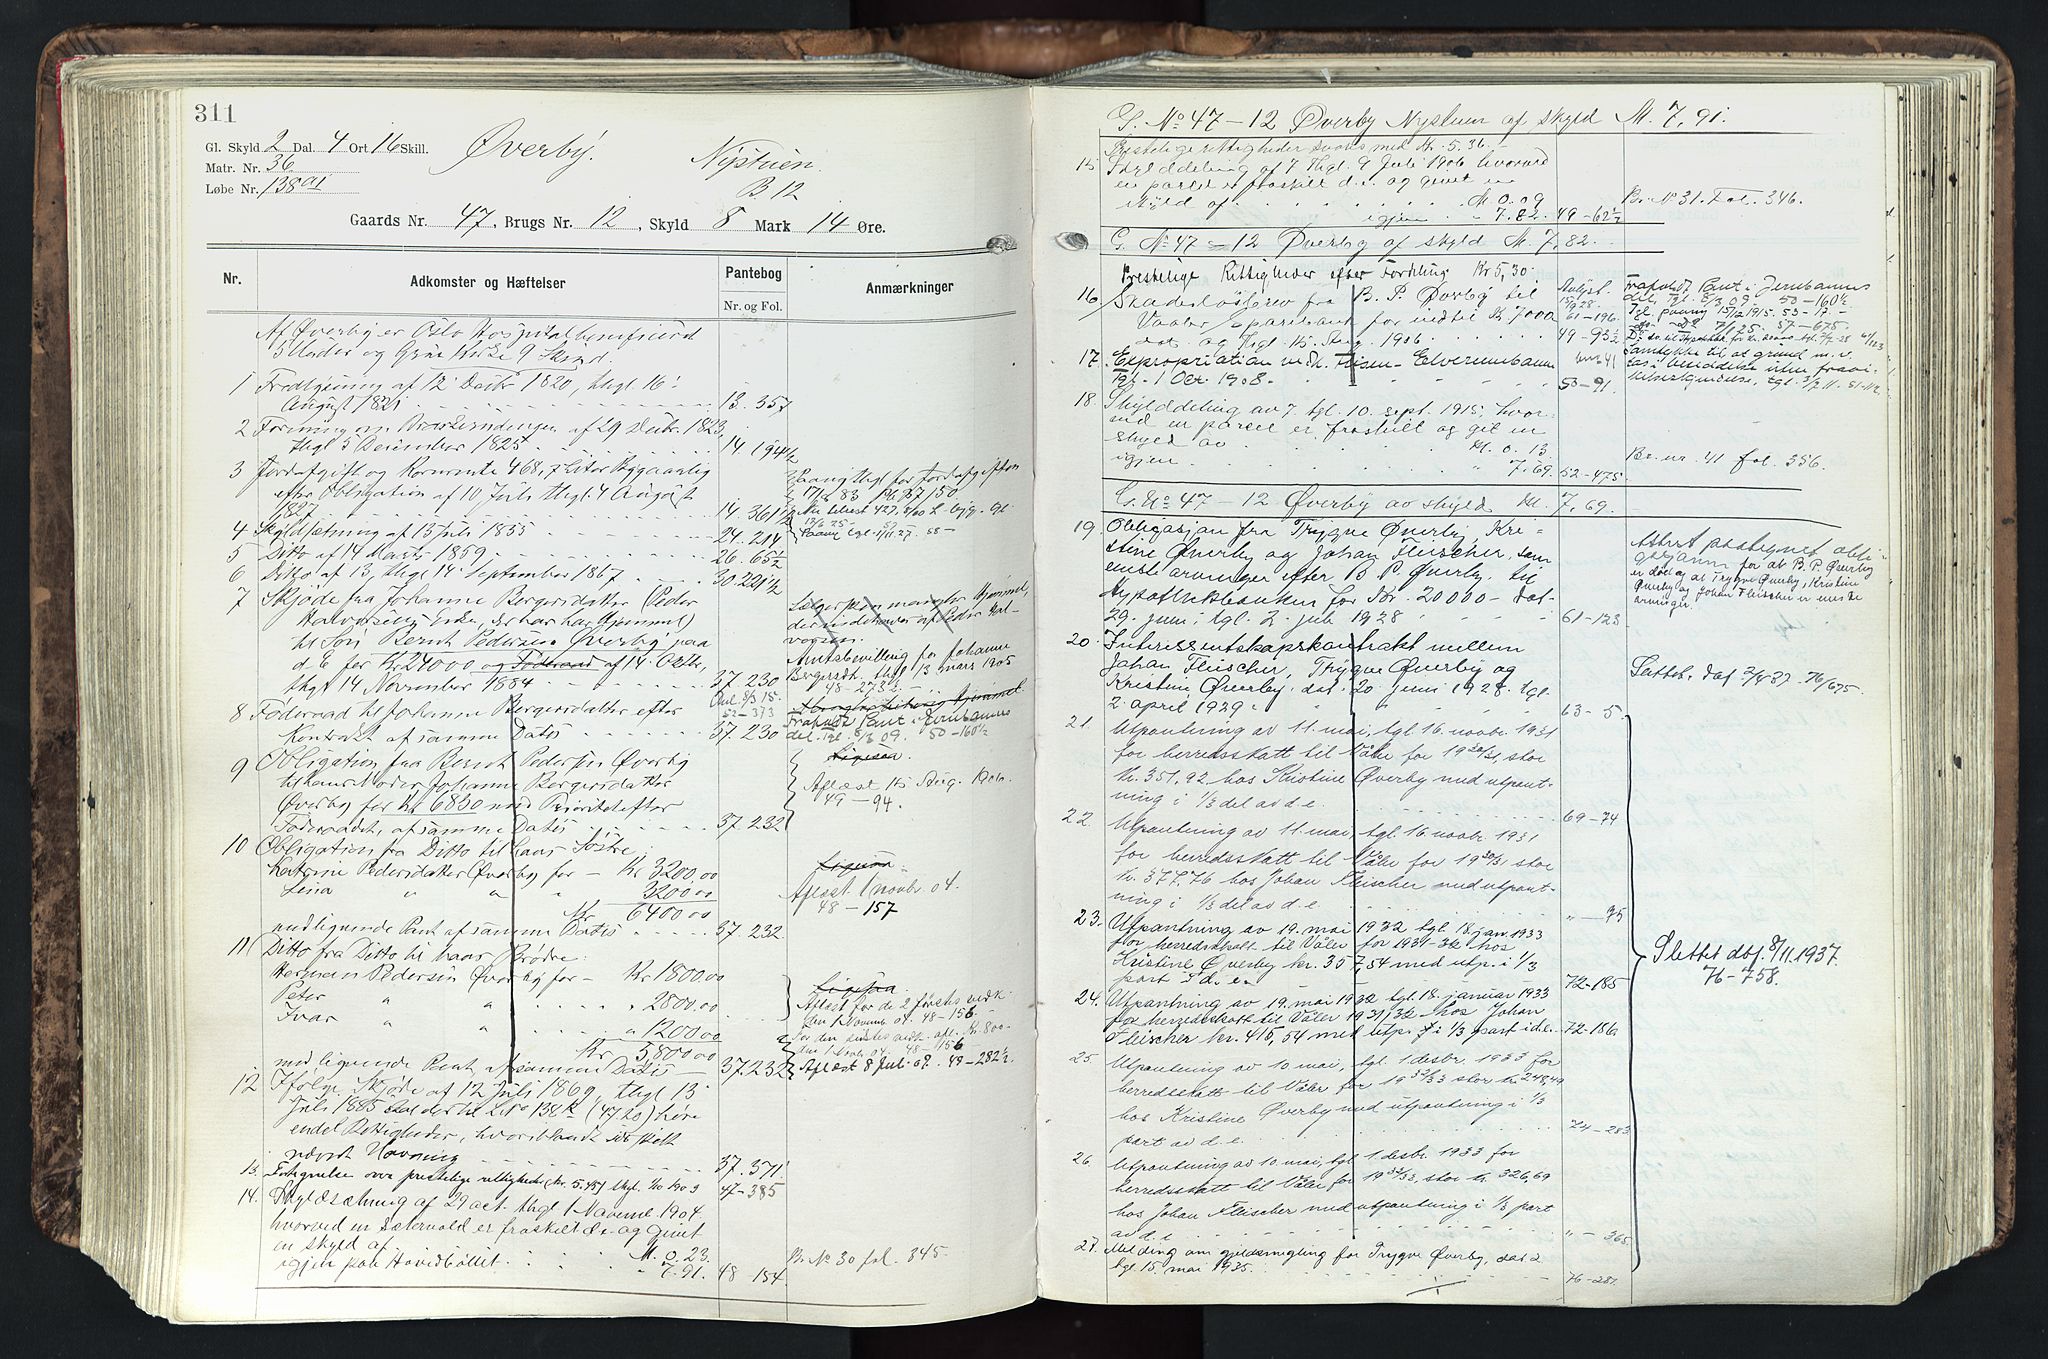 311
Gl. Skyld 2 Dal. 4 Ort 16 Skill.
Matr. Nr. 36
Løbe Nr. 138 a1
Øverby.
Nystuen.
B 12
Gaards Nr. 47, Brugs Nr. 12, Skyld 8 Mark 14 Øre.
Nr. Adkomster og Hæftelser Pantebog Nr. og Fol. Anmærkninger
Af Øverby er Oslo Hospital beneficeret
og 9 Skind.
1 Fredlysning af 12 Decbr 1820, thgl 16
August 1821 13. 357
2 Forening om af 29 Decbr. 1823,
thgl 5 December 1825 14. 194½
3 Jordafgift og Kornrente 468,7 Liter Byg aarlig
efter Obligation af 10 Juli thgl. 4 August
1827 14. 361½
4 Skyldsetning af 13 Juli 1855 24. 214
5 Ditto af 14 Marts 1859 26. 65½
6 Ditto af 13, thgl. 14 September 1867 30. 221½
7 Skjøde fra Johanne Bergersdatter (Peder
Halvorsens Enke, der har Hjemmel)
til Søn Bernt Pedersen Øverby paa
d. E. for Kr 24000 og Føderaad af 14 Octbr,
thgl 14 November 1884 37. 230
Amtsbevilling for Johanne
Bergersdt. thgl 1/3 mars 1905
48-273½
8 Føderaad til Johanne Bergersdatter efter
Kontrakt af samme Datis 37. 230
Frafaldt Pant i Jernbanens
del. Tgl. 8/3 09. 50-160½
9 Obligation fra Bernt Pedersen Øverby
til hans Moder Johanne Bergersdatter
Øverby for Kr 6830 med Prioritet efter
Føderaadet, af samme Datis 37. 232
Ligesaa
Aflæst 15 Aug. 1906.
49-94.
10 Obligation fra Ditto til hans Søstre:
Katrine Pedersdatter Øverby for Kr 3200.00
Lina " " " 3200.00
Kr 6400.00
med lignende Pant af samme Datis 37. 232
Ligesaa
Aflæst 1 novbr 04.
48-157
11 Ditto fra Ditto til hans Brødre:
Herman Pedersen Øverby for Kr 1800.00
Peter " " " 2800.00
Ivar " " " 1200.00
Kr 5,800.00
med lignende Pant af samme Datis 37. 232
Ligesaa
Aflæst for de 2 første vedk.
den 1 Novemb 04. 48-156
Aflæst 8 Juli 07. 49-282½
12 Ifølge Skjøde af 12 Juli 1869, thgl 13
Juli 1885 skal der til L.No 138k (47,20) høre
endel Rettigheder, hvoriblandt
nævnt Havning 37. 371
13. Fortegnelse over prestelige rettigheder (kr. 5.45) thgl. 47-385
14. Skyldsætning af 29 oct. thgl 1 November 1904,
hvorved en Sætervold er fraskilt d.e. og givet
en skyld af M. 0.23.
igjen paa Hovedbøllet 7.91. 48 154
Br. No 30 fol. 345.
G. No 47-12 Øverby Nystuen af skyld M. 7,91.
Prestelige rettigheder svares med Kr. 5.36
15 Skylddeling af 7 thgl 9 Juli 1906 hvorved
en parcel er fraskilt d.e. og givet en
skyld af M. 0.09
igjen 7.82. 49-62½
Br. No 31. Fol. 346.
G. No 47-12 Øverby af skyld M. 7,82.
Prestelige Rettigheder efter Fordeling Kr 5,30.
16 Skadesløsbrev fra B. P. Øverby til
Vaaler Sparebank for indtil Kr 7000
dat. og thgl 15 Aug. 1906 49-93½
Frafaldt Pant i Jernbanens
del. Tgl. 8/3 09 - 50-160½
17. Expropriation ved Flisen-Elverumbanen
tgl. 1 Oct. 1908. 50-91.
18. Skylddeling av 7. tgl. 10. sept. 1915, hvor-
ved en parcel er fraskilt og git en
skyld av M. 0.13.
igjen 7.69. 52-475.
Br. nr. 41 fol. 356.
G. No 47-12 Øverby av skyld M. 7,69.
19. Obligasjon fra Trygve Øverby, Kri-
stine Øverby og Johan Fleischer, som
eneste arvinger efter B. P. Øverby, til
Hypotekbanken for Kr. 20000- dat.
29. juni, tgl. 2. juli 1928 61-123
Attest påtegnet obli-
gasjonen for at B. P. Øverby
er død og at Trygve Øverby, Kristine
Øverby og Johan Fleischer er eneste
arvinger.
20. Interessentskapskontrakt mellem
Johan Fleischer, Trygve Øverby og
Kristine Øverby, dat. 20 juni 1928. tgl.
2. april 1929. 63-5.
Slettet. dat 2/4 87. 76/675.
21. Utpantning av 11. mai, tgl 16. novbr. 1931
for herredsskatt til Våler for 1930/31, stor
kr. 351,92 hos Kristine Øverby med utpant-
ning i 1/3 del av d.e. 69-74
22. Utpantning av 11. mai, tgl. 16. novbr. 1931
for herredsskatt til Våler for 1930/31 stor
kr. 377,76 hos Johan Fleischer med utpant-
ning i 1/3 del av d.e. "-75
23. Utpantning av 19. mai 1932 tgl 18. jan. 1933
for herredsskatt til Våler for 1931-32 hos
Kristine Øverby kr. 357,54 med utp. i 1/3
part i d.e. 72-185
24. Utpantning av 19. mai 1932 tgl. 18. januar 1933
for herredsskatt til Våler 1931/32 hos Johan
Fleischer kr. 415,54 med utp. i 1/3 part i d.e. 72-186
25. Utpantning av 10 mai, tgl. 1 desbr. 1933 for
herredsskatt til Våler for 1932/33 stor kr. 248,49
hos Kristine Øverby med utpantning i 1/3
part av d.e. 74-283
26. Utpantning av 10. mai, tgl. 1 desbr. 1933 for
herredsskatt til Våler for 1932/33, stor kr. 326,69
hos Johan Fleischer med utpantning i 1/3 part
av d.e. "-365
Slettet dat. 8/11.1937.
76-758.
27. Melding om gjeldsmegling for Trygve Øverby, dat 2
tgl. 15. mai 1935. 76-281